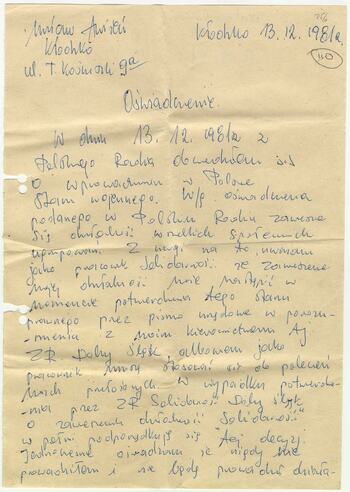 Kłodzko 13.12.1981r.
Kłodzko
ul. T. Kościuszki 9a
110
Oświadczenie.
W dniu 13.12.1981r z
Polskiego Radia dowiedziałem się
o wprowadzeniu w Polsce
Stanu wojennego. W/g oświadczenia
podanego w Polskim Radiu zawiesza
się działalność wszelkich społecznych
Z uwagi na to, uważam
jako pracownik Solidarności, że zawieszenie
mojej działalności może nastąpić w
momencie potwierdzenia tego stanu
prawnego przez pismo urzędowe w porozu-
mieniu z moim kierownictwem tj
ZR Dolny Śląsk, albowiem jako
pracownik muszę stosować się do poleceń
moich przełożonych. W wypadku potwierdze-
nia przez ZR Solidarność Dolny Śląsk
o zawieszeniu działalności "Solidarności"
w pełni podporządkuję się tej decyzji.
Jednocześnie oświadczam, że nigdy nie
prowadziłem i nie będę prowadził działa-